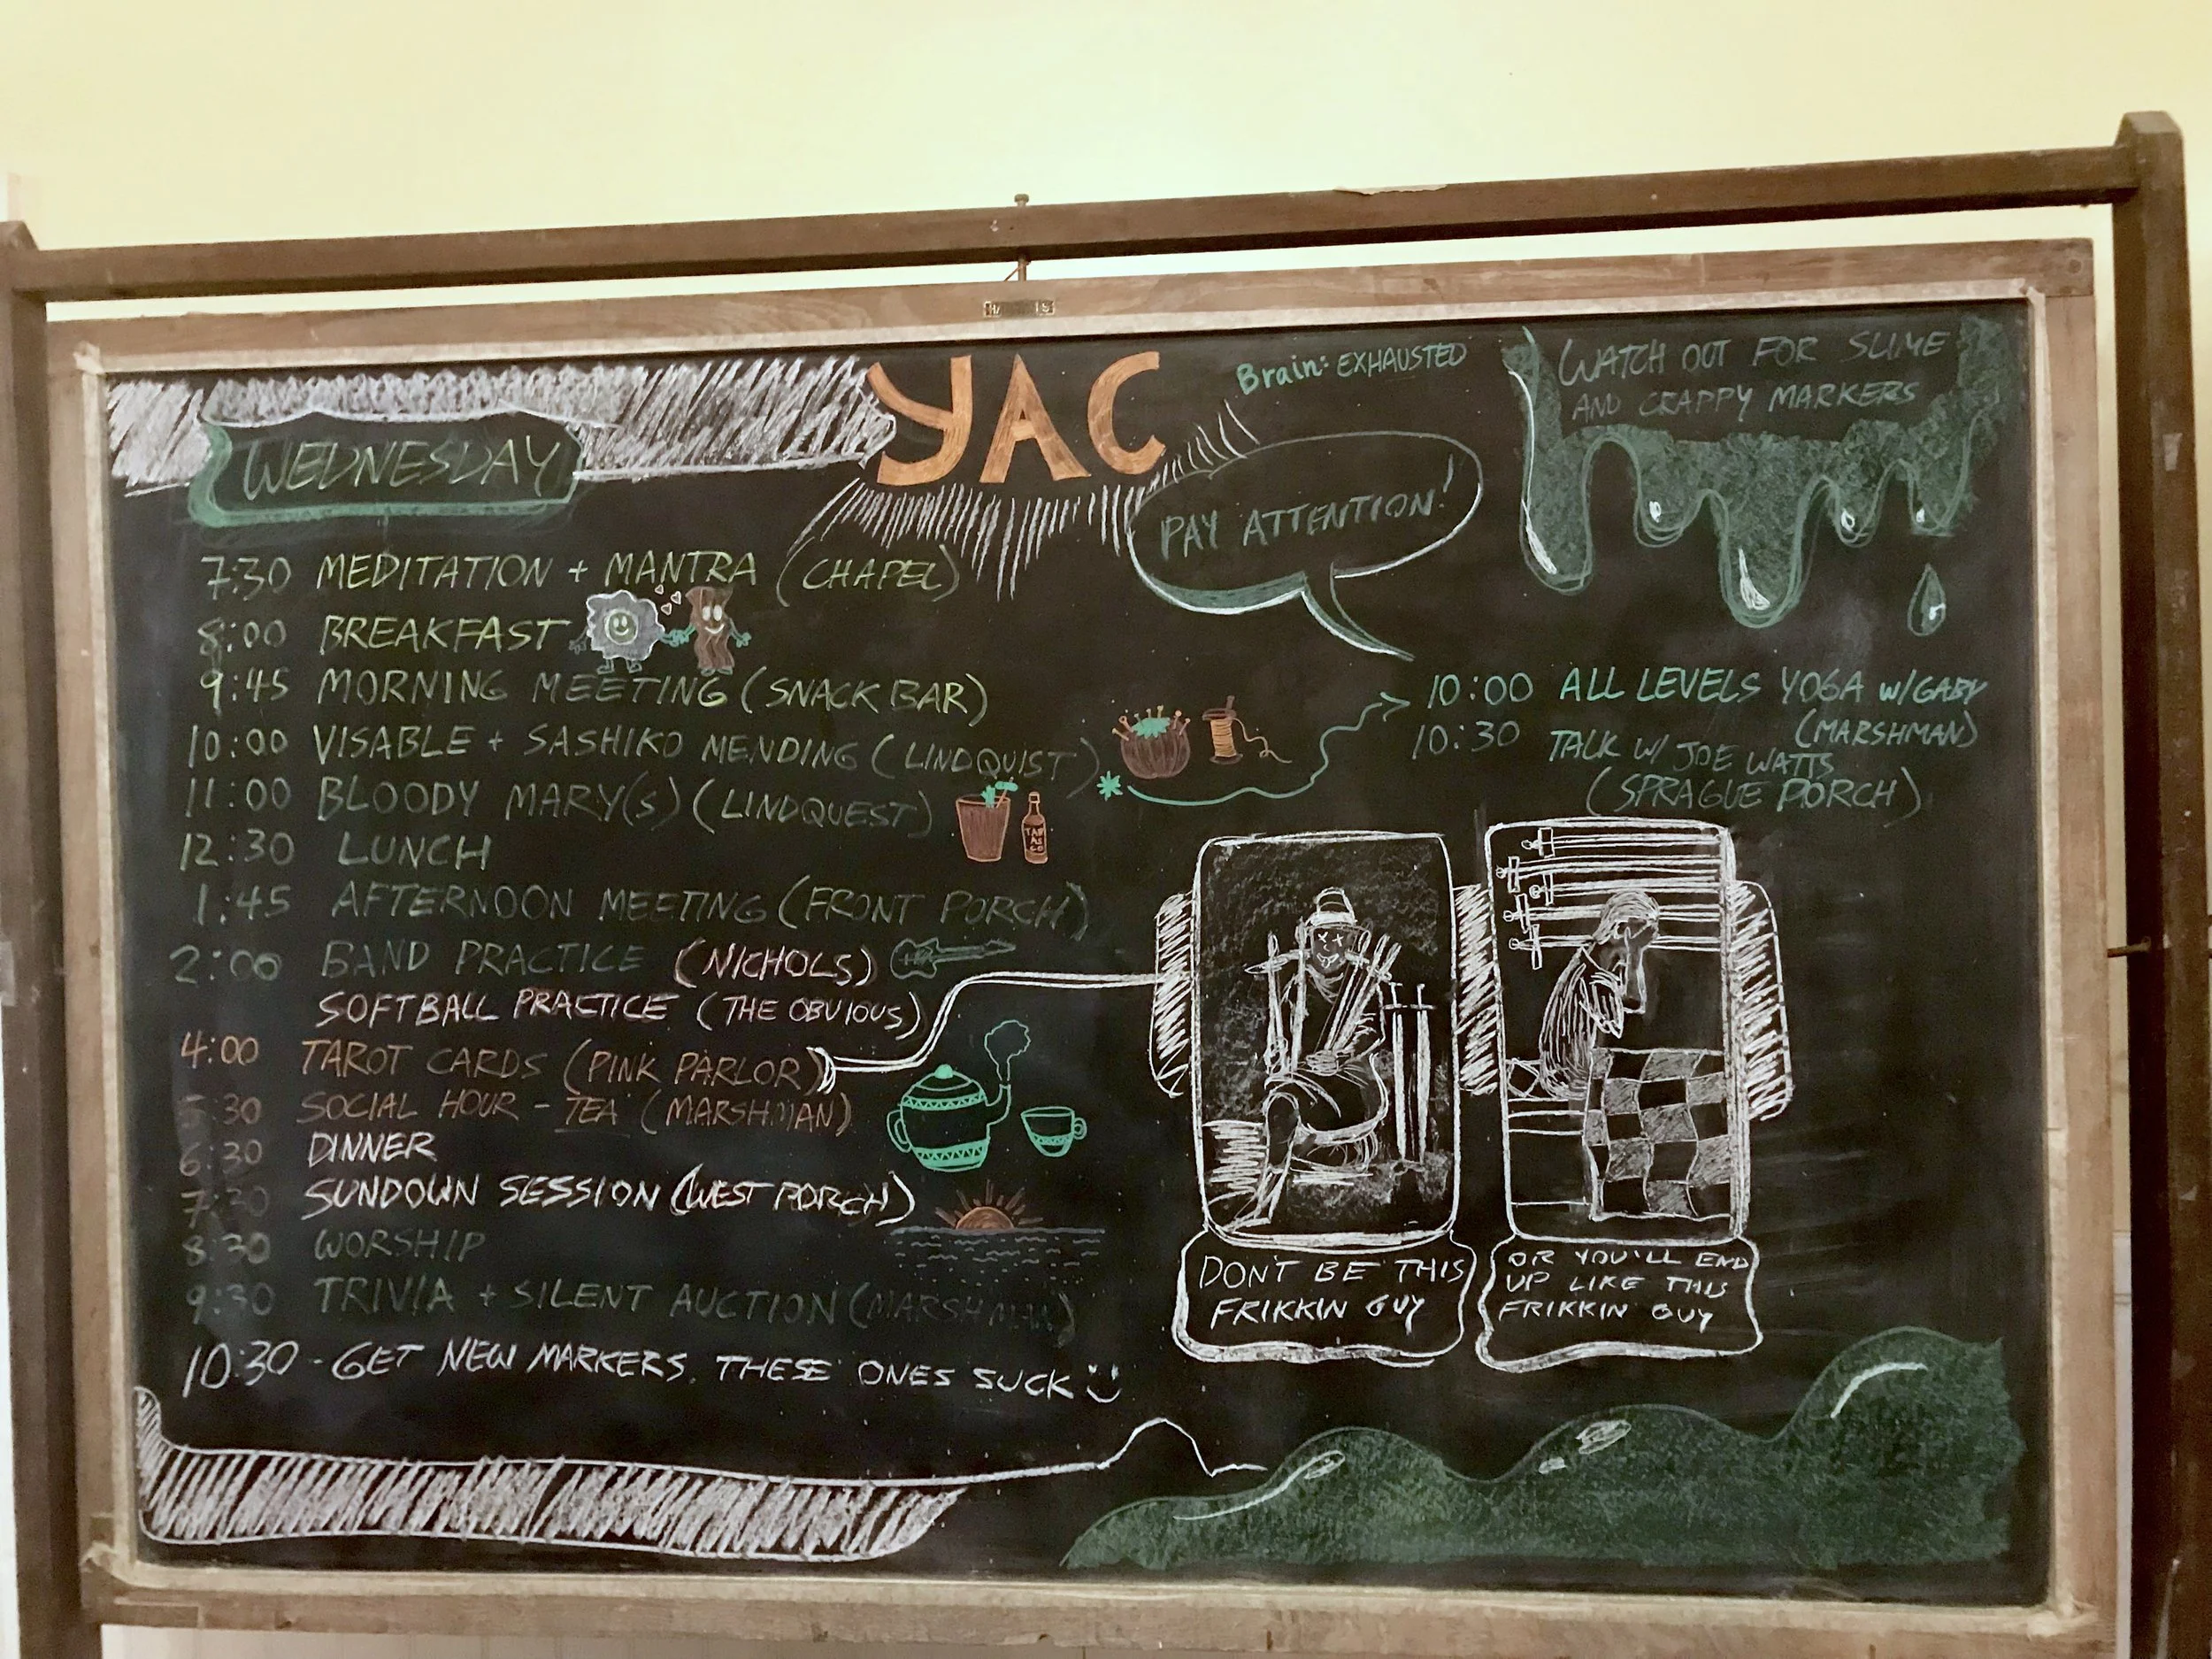 YAC
Brain: EXHAUSTED
WATCH OUT FOR SLIME
AND CRAPPY MARKERS
WEDNESDAY
PAY ATTENTION!
7:30 MEDITATION + MANTRA (CHAPEL)
8:00 BREAKFAST
9:45 MORNING MEETING (SNACK BAR)
10:00 VISABLE + SASHIKO MENDING (LINDQUIST)
11:00 BLOODY MARY(S) (LINDQUEST)
TABASCO
12:30 LUNCH
1:45 AFTERNOON MEETING (FRONT PORCH)
2:00 BAND PRACTICE (NICHOLS)
SOFTBALL PRACTICE (THE OBVIOUS)
4:00 TAROT CARDS (PINK PARLOR)
5:30 SOCIAL HOUR - TEA (MARSHMAN)
6:30 DINNER
7:30 SUNDOWN SESSION (WEST PORCH)
8:30 WORSHIP
9:30 TRIVIA + SILENT AUCTION (MARSHMAN)
10:30 - GET NEW MARKERS. THESE ONES SUCK
10:00 ALL LEVELS YOGA W/GABY
(MARSHMAN)
10:30 TALK W/ JOE WATTS
(SPRAGUE PORCH)
DON'T BE THIS
FRIKKIN GUY
OR YOU'LL END
UP LIKE THIS
FRIKKIN GUY